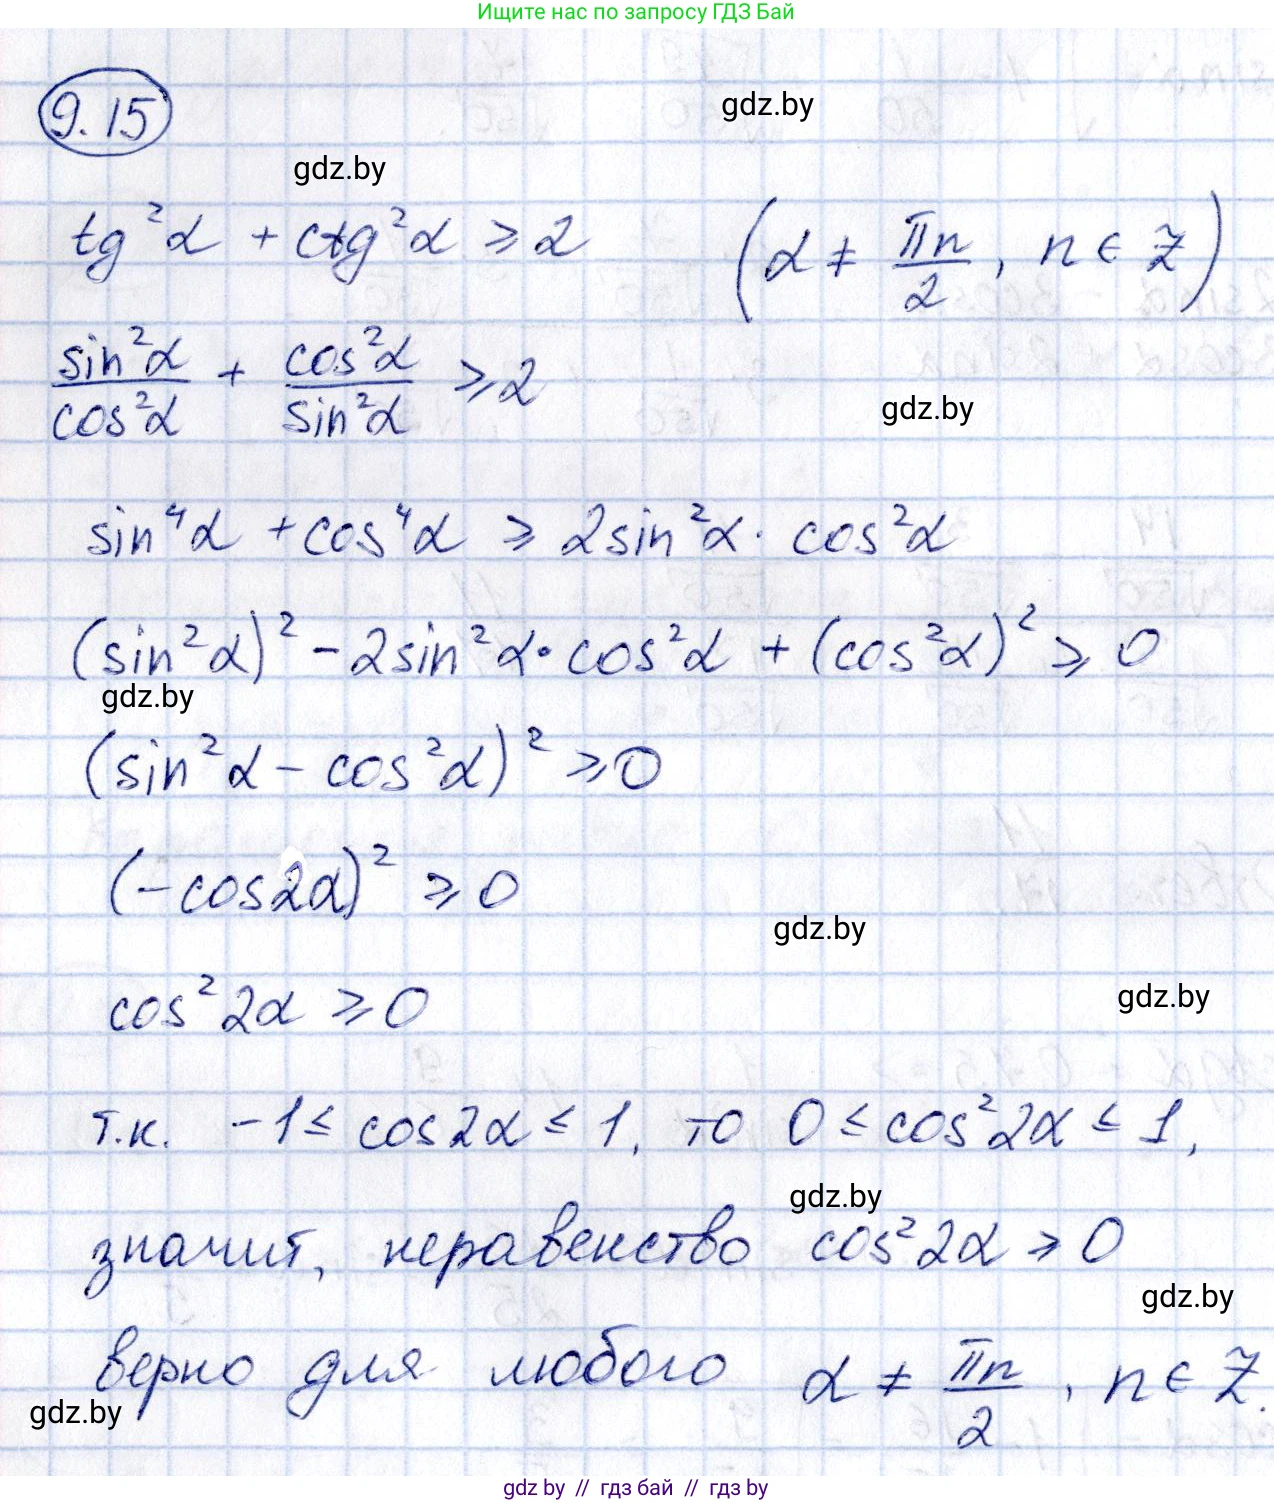 Ищите нас по запросу ГДЗ Бай
9.15
gdz.by
gdz.by
tg²α + ctg²α ⩾ 2 (α ≠ πn/2, n ∈ Z)
sin²α/cos²α + cos²α/sin²α ⩾ 2
gdz.by
sin⁴α + cos⁴α ⩾ 2sin²α · cos²α
(sin²α)² − 2sin²α · cos²α + (cos²α)² ⩾ 0
gdz.by
(sin²α − cos²α)² ⩾ 0
(−cos2α)² ⩾ 0
gdz.by
cos²2α ⩾ 0
gdz.by
т.к. −1 ≤ cos2α ≤ 1, то 0 ≤ cos²2α ≤ 1,
gdz.by
значит, неравенство cos²2α ⩾ 0
gdz.by
верно для любого α ≠ πn/2, n ∈ Z.
gdz.by
gdz by // гдз бай // гдз by